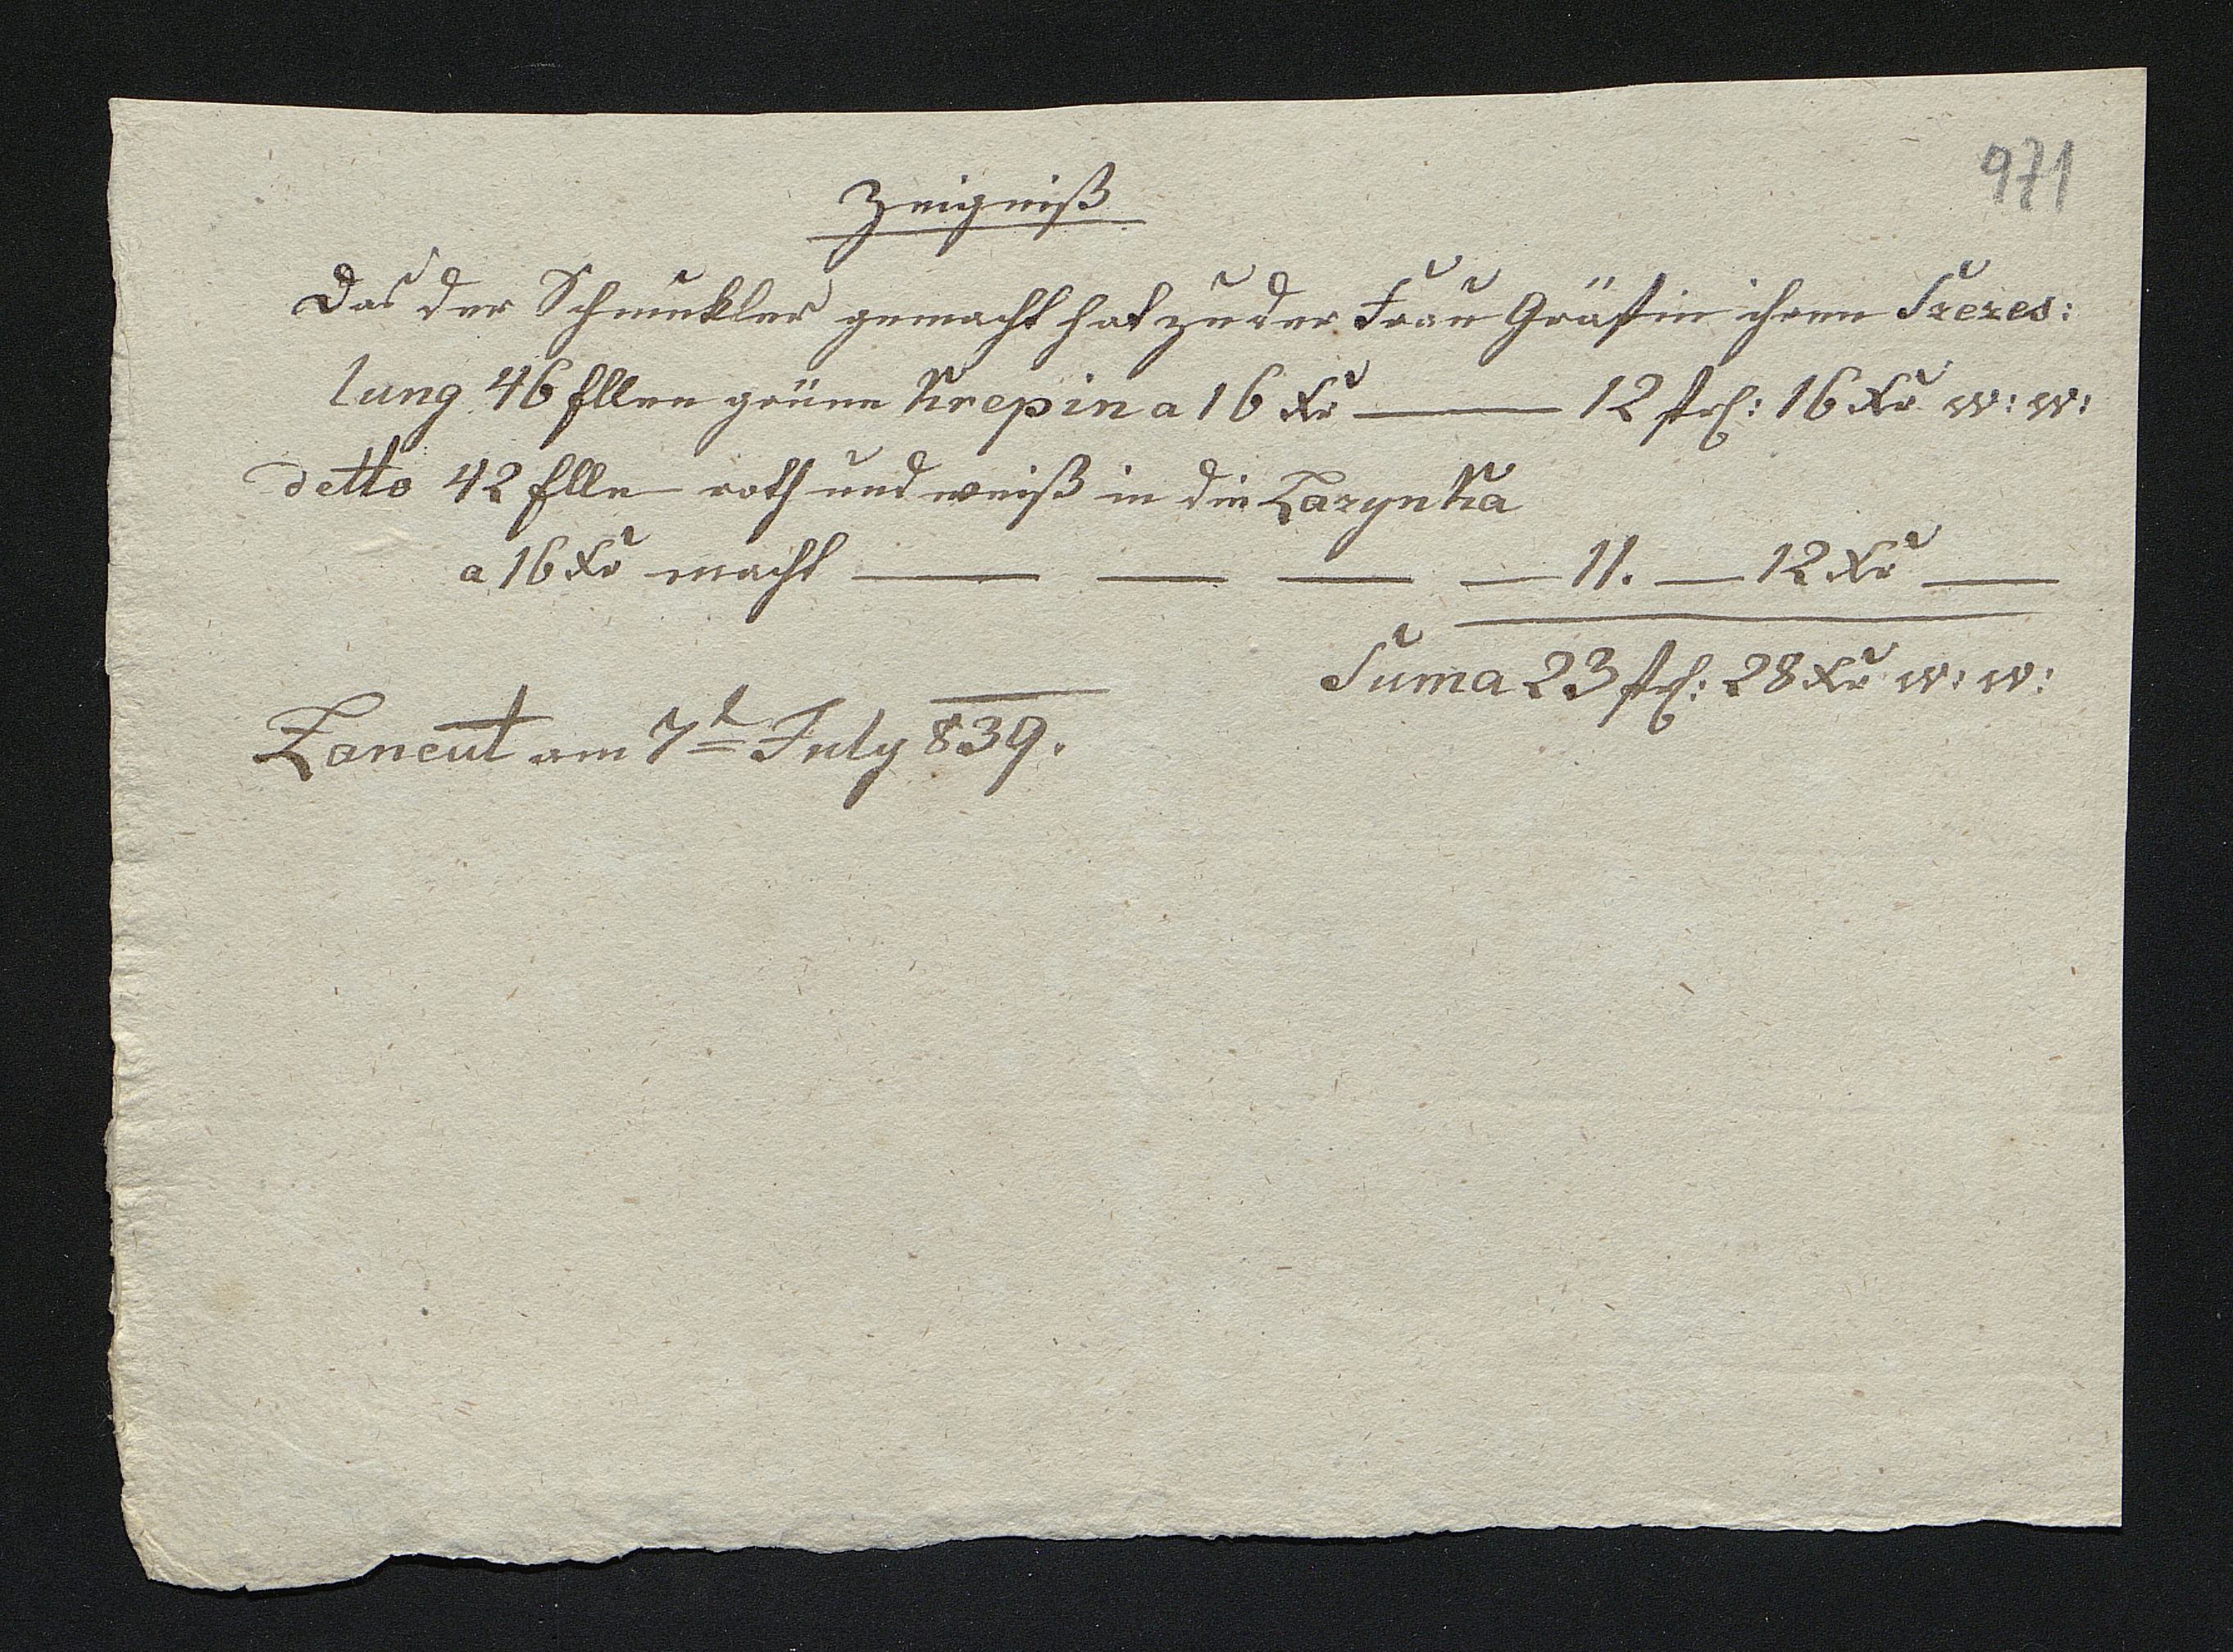 971
Zeigniß
Das der Schmukler gemacht hat zu der Frau Gräfin ihren Szezes:
lung 46 Ellen grüne Krepin a 16 Xr — 12 fl: 16 Xr w: w:
detto 42 Elle roth und weiß in die Łazynka
a 16 Xr macht — — — — 11. — 12 Xr —
Suma 23 fl: 28 Xr w: w:
Łancut am 7t July 839.